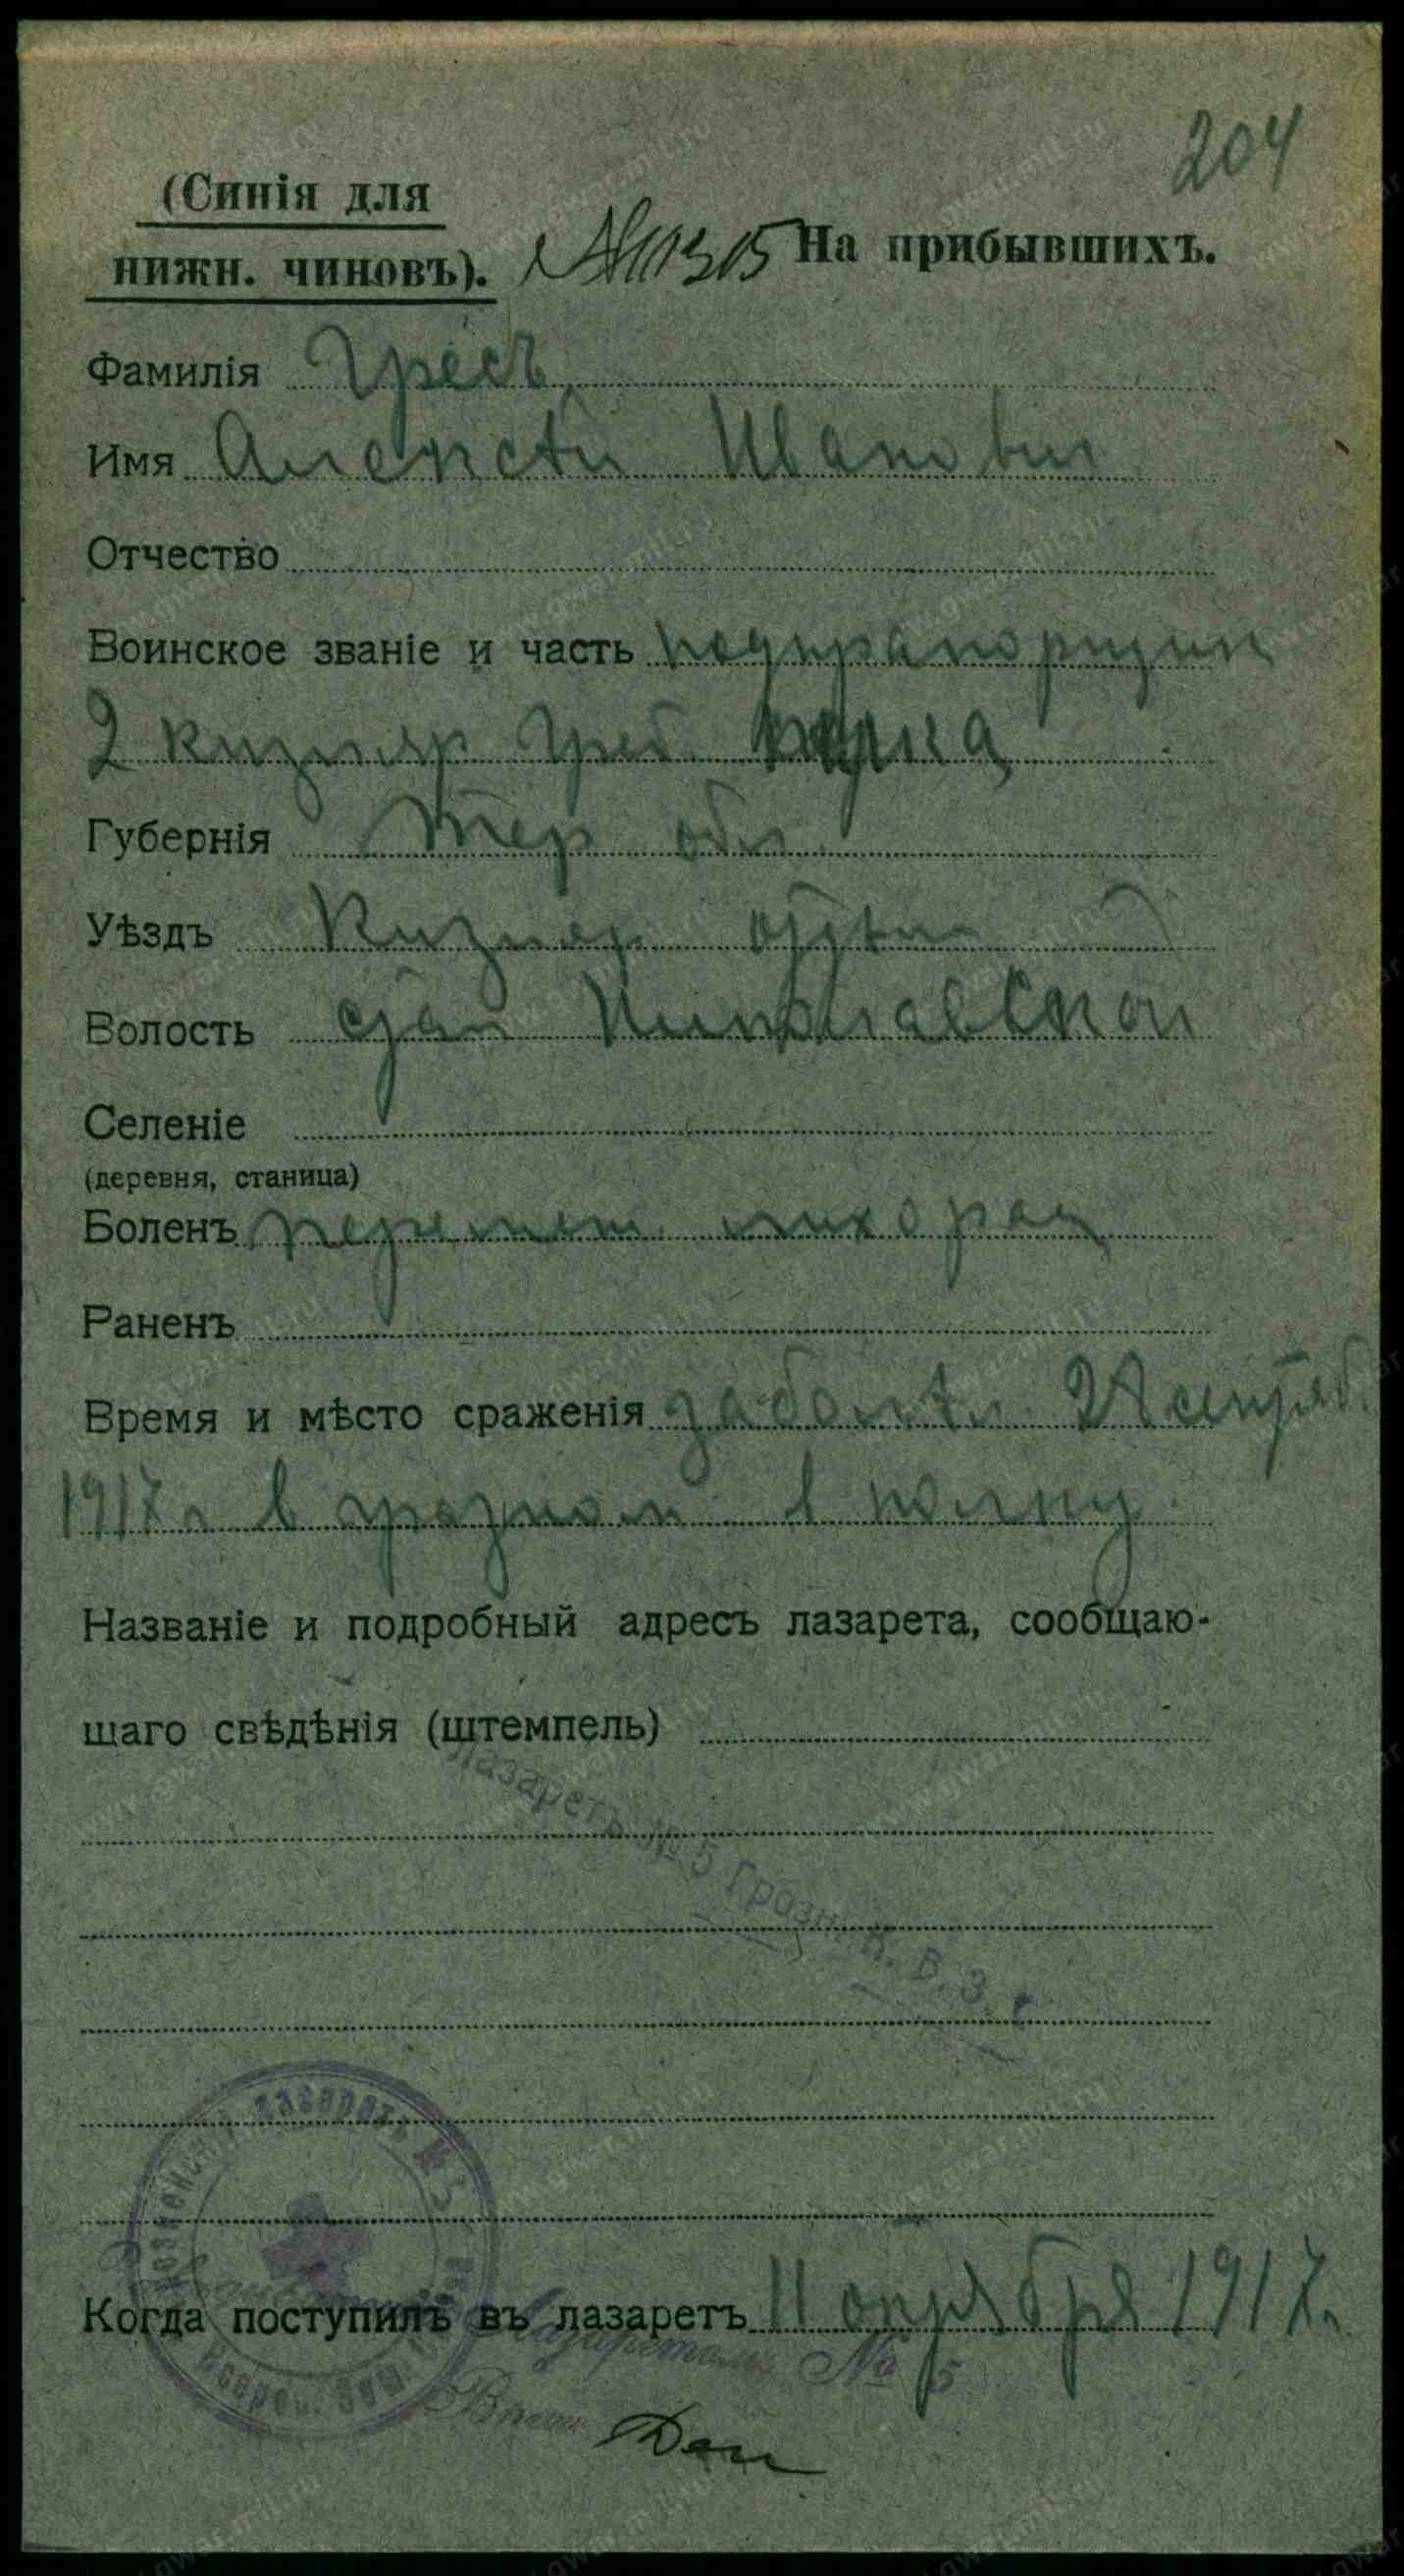 204
(Синія для
нижн. чиновъ). № 11315 На прибывшихъ.
Фамилія Гресь
Имя Алексѣй Иванович
Отчество
Воинское званіе и часть подпрапорщик
2 кизляр греб. полка
Губернія Тер обл.
Уѣздъ Кизляр отдѣл
Волость стан Николаевской
Селеніе
(деревня, станица)
Боленъ лихорад
Раненъ
Время и мѣсто сраженія заболѣл сентяб.
1917 г в грозном в полку.
Названіе и подробный адресъ лазарета, сообщаю-
щаго свѣдѣнія (штемпель)
Лазаретъ № 5 Грозн. К. В. З. Г.
Когда поступилъ въ лазаретъ 11 октября 1917 г.
Лазаретомъ № 5